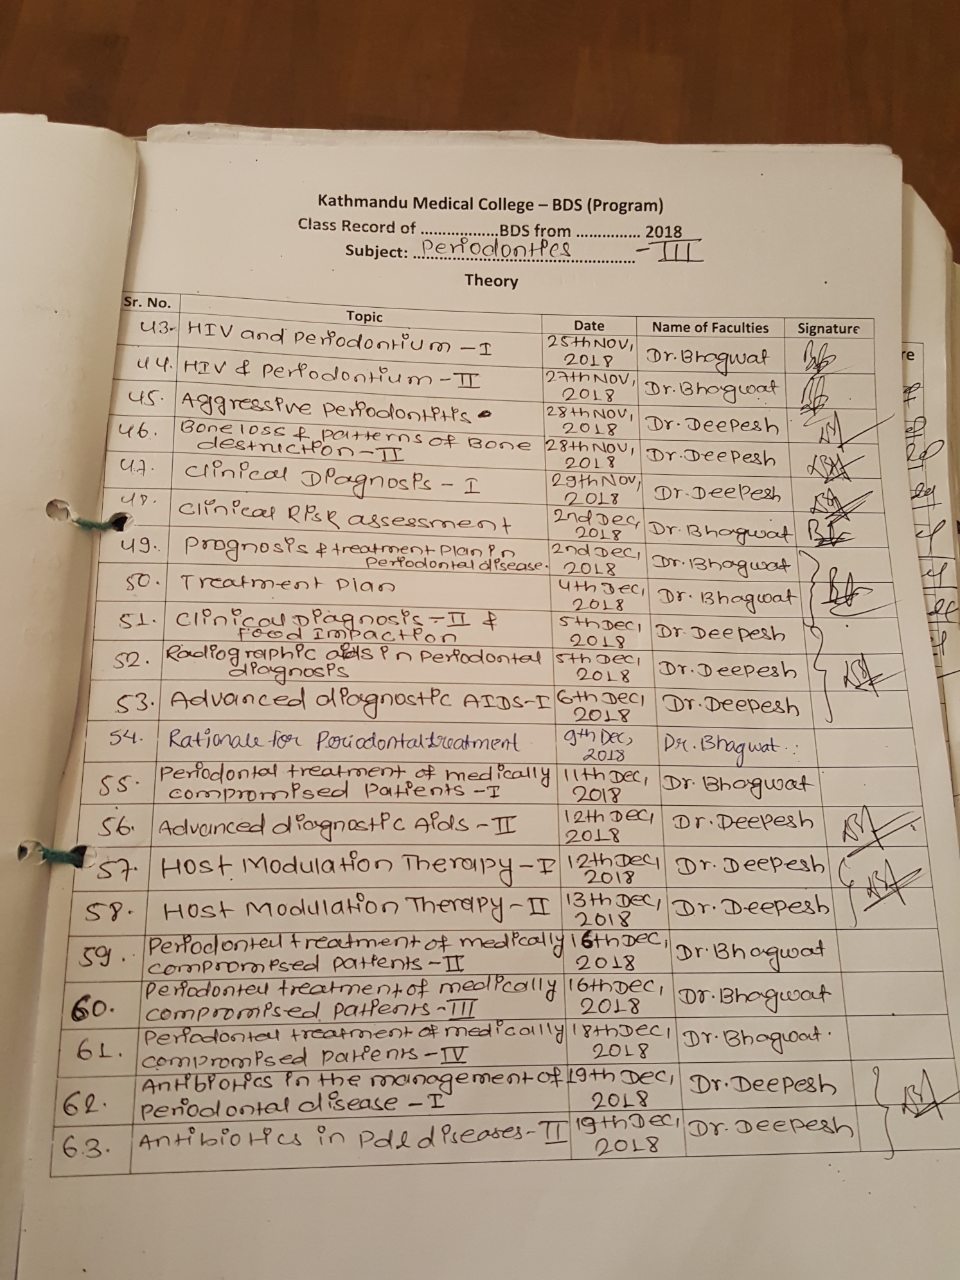 Kathmandu Medical College – BDS (Program)
Class Record of .................BDS from .............. 2018
Subject: Periodontics - III
Theory
Sr. No. Topic Date Name of Faculties Signature
43. HIV and Periodontium - I 25th Nov, 2018 Dr. Bhagwat
44. HIV & Periodontium - II 27th Nov, 2018 Dr. Bhagwat
45. Aggressive periodontitis 28th Nov, 2018 Dr. Deepesh
46. Bone loss & patterns of Bone
destruction - II 28th Nov, 2018 Dr. Deepesh
47. Clinical Diagnosis - I 29th Nov, 2018 Dr. Deepesh
48. Clinical Risk assessment 2nd Dec, 2018 Dr. Bhagwat
49. Prognosis & treatment plan in
Periodontal disease. 2nd Dec, 2018 Dr. Bhagwat
50. Treatment Plan 4th Dec, 2018 Dr. Bhagwat
51. Clinical Diagnosis - II &
Food Impaction 5th Dec, 2018 Dr. Deepesh
52. Radiographic aids in periodontal
diagnosis 5th Dec, 2018 Dr. Deepesh
53. Advanced diagnostic AIDS - I 6th Dec, 2018 Dr. Deepesh
54. Rationale for Periodontal treatment 9th Dec, 2018 Dr. Bhagwat
55. Periodontal treatment of medically
compromised patients - I 11th Dec, 2018 Dr. Bhagwat
56. Advanced diagnostic Aids - II 12th Dec, 2018 Dr. Deepesh
57. Host Modulation Therapy - I 12th Dec, 2018 Dr. Deepesh
58. Host Modulation Therapy - II 13th Dec, 2018 Dr. Deepesh
59. Periodontal treatment of medically
compromised patients - II 16th Dec, 2018 Dr. Bhagwat
60. Periodontal treatment of medically
compromised patients - III 16th Dec, 2018 Dr. Bhagwat
61. Periodontal treatment of medically
compromised patients - IV 18th Dec, 2018 Dr. Bhagwat.
62. Antibiotics in the management of
periodontal disease - I 19th Dec, 2018 Dr. Deepesh
63. Antibiotics in Pdl diseases - II 19th Dec, 2018 Dr. Deepesh